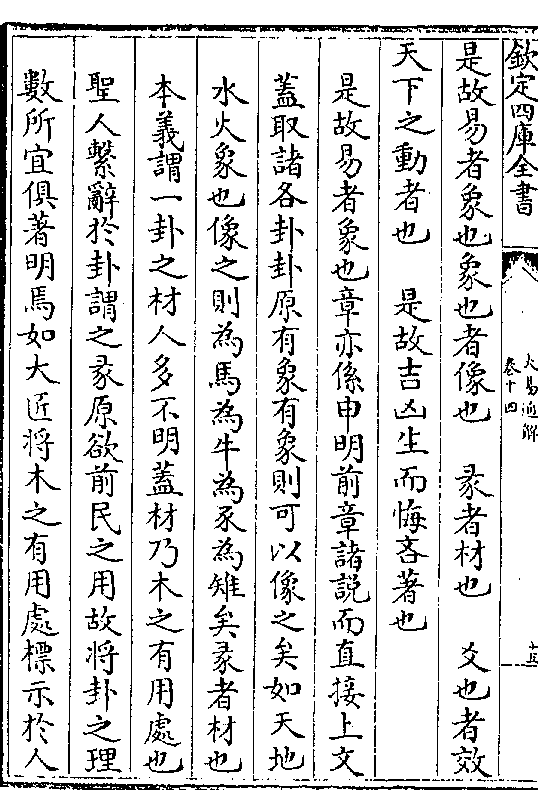 欽定四庫全書
大易通解
卷十四
是故易者象也象也者像也 彖者材也 爻也者效
天下之動者也 是故吉凶生而悔吝著也
是故易者象也章亦係申明前章諸說而直接上文
蓋取諸各卦卦原有象有象則可以像之矣如天地
水火象也像之則為馬為牛為豕為雉矣彖者材也
本義謂一卦之材人多不明蓋材乃木之有用處也
聖人繫辭於卦謂之彖原欲前民之用故將卦之理
數所宜俱著明焉如大匠將木之有用處標示於人